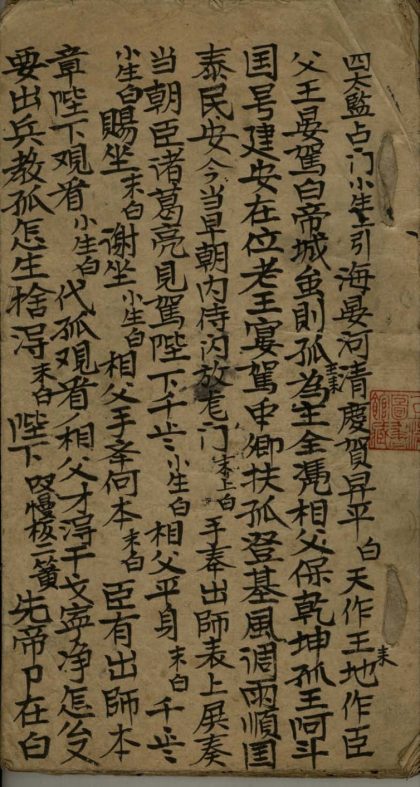 四大監占门小生上引海晏河清慶賀昇平白天作王地作臣
父王晏駕白帝城虽則孤為主全凴相父保乾坤孤王阿斗
国号建安在位老王宴駕申卿扶孤登基風调雨順国
泰民安今当早朝内侍闪放龙门末上白手奉出師表上展奏
当朝臣诸葛亮見駕陛下千岁小生白相父平身末白千岁
小生白賜坐末白谢坐小生白相父手奉何本末白臣有出師本
章陛下观看小生白代孤观看相父才淂干戈寧净怎么又
要出兵教孤怎生捨淂末白陛下叹慢板二簧先帝卩在白